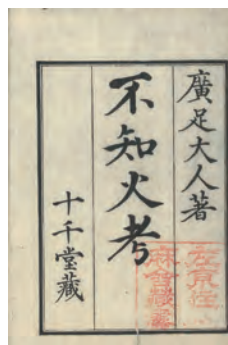 廣足大人著
不知火考
十千堂藏